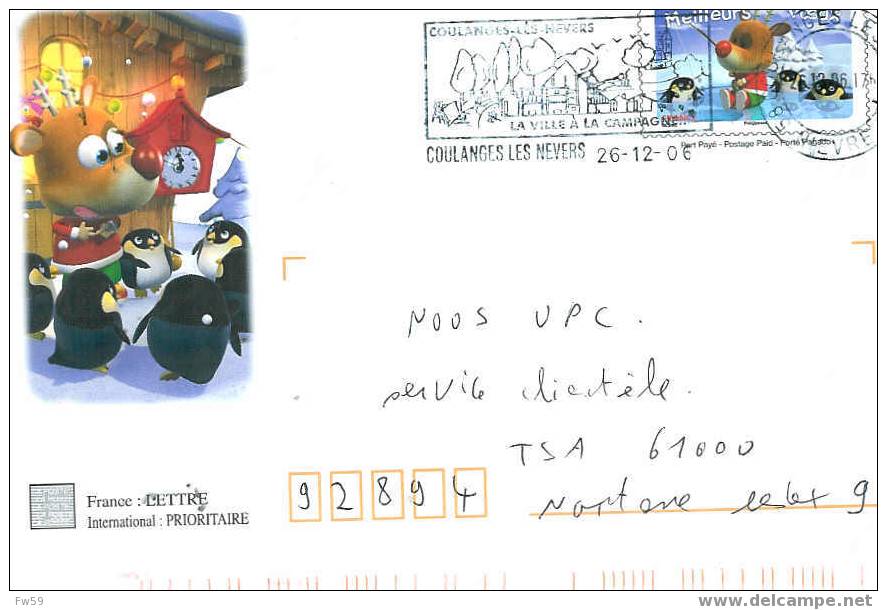 COULANGES-LES-NEVERS
LA VILLE À LA CAMPAGNE
COULANGES LES NEVERS 26-12-06
Meilleurs
FRANCE
Port Payé - Postage Paid - Porte Pagado
NOOS UPC.
service clientèle.
TSA 61000
92894 Nanterre cedex 9
France : LETTRE
International : PRIORITAIRE
Fw59
www.delcampe.net